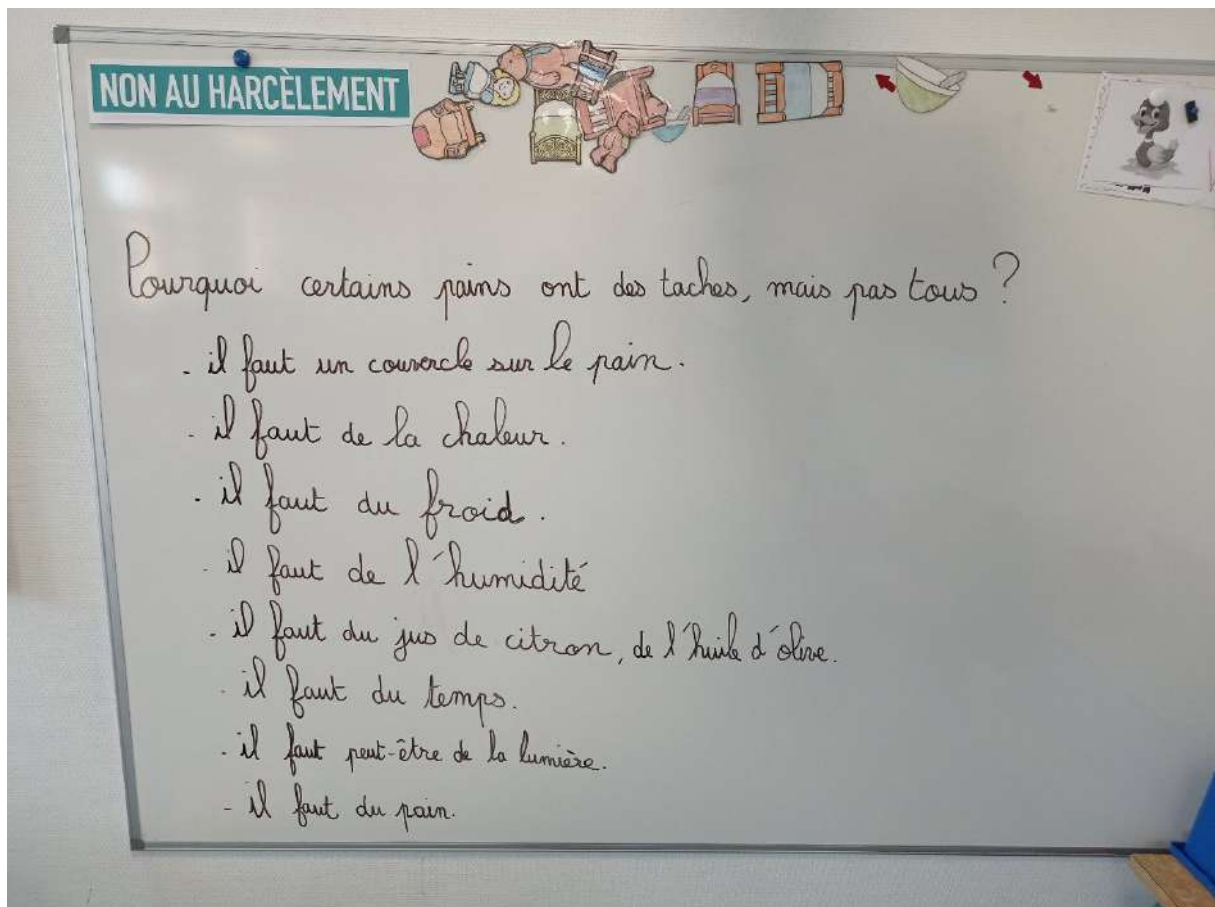 NON AU HARCÈLEMENT
Pourquoi certains pains ont des taches, mais pas tous ?
- il faut un couvercle sur le pain.
- il faut de la chaleur.
- il faut du froid.
- il faut de l'humidité
- il faut du jus de citron, de l'huile d'olive.
- il faut du temps.
- il faut peut-être de la lumière.
- il faut du pain.